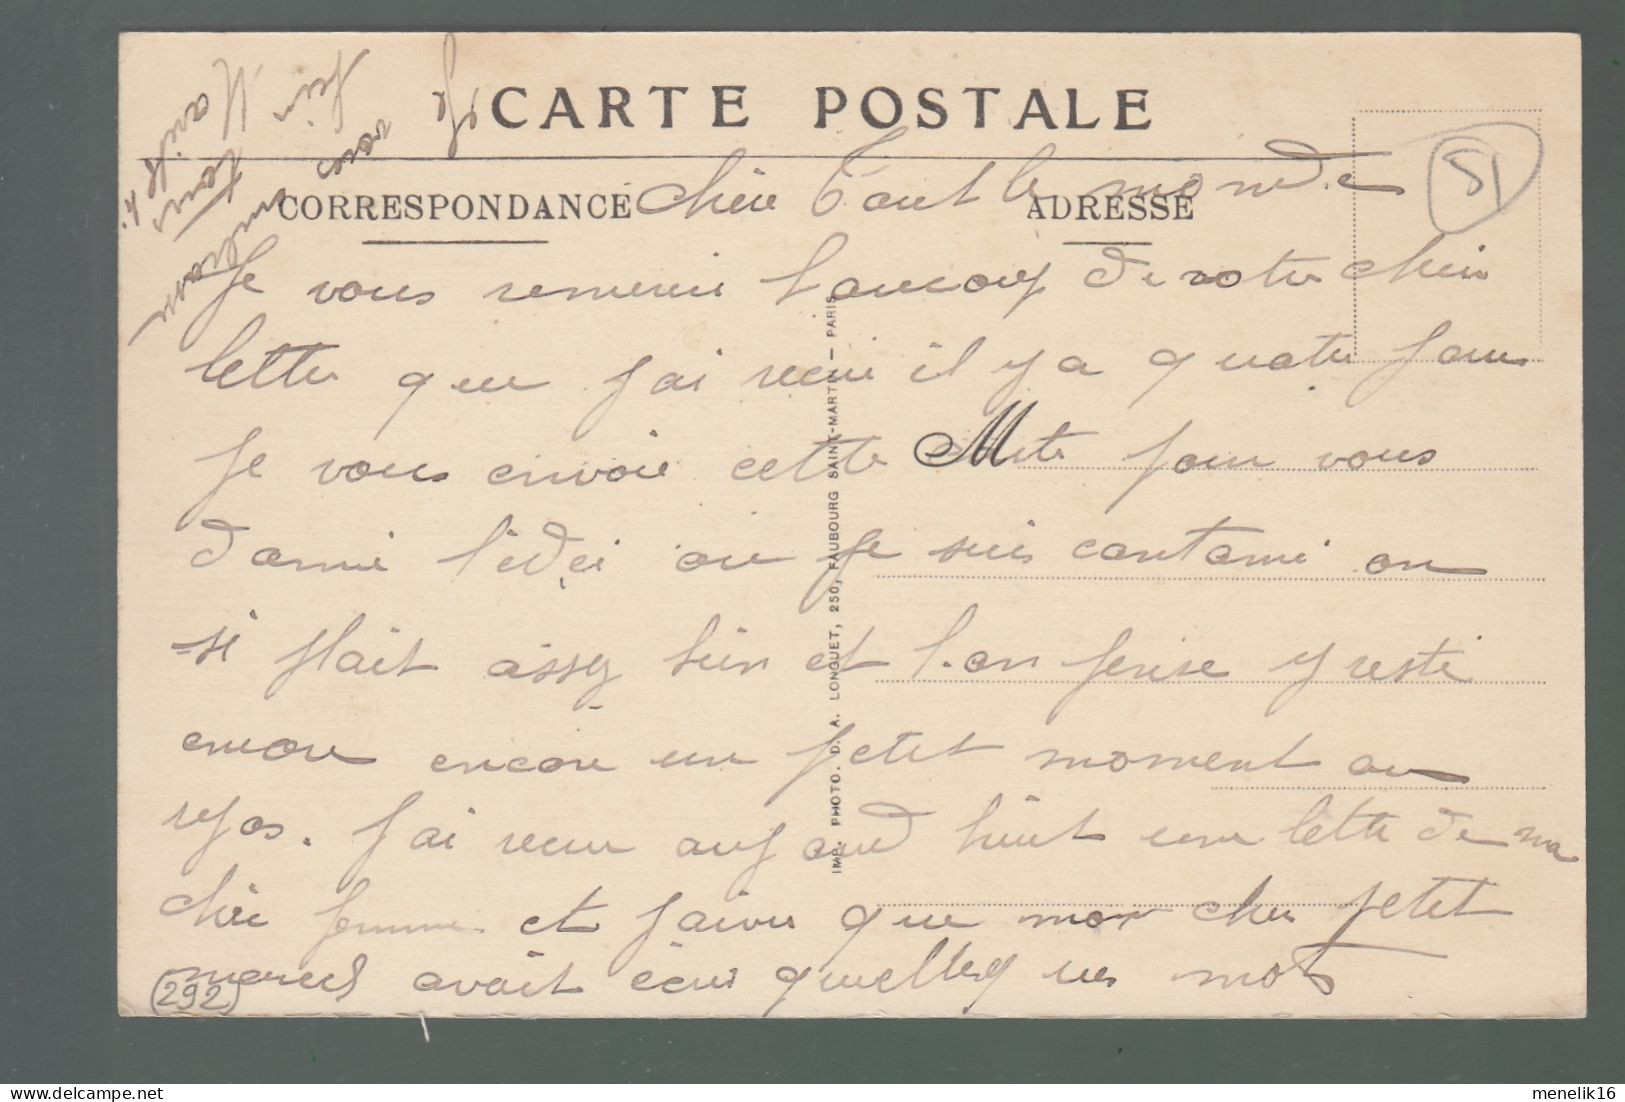 CARTE POSTALE
CORRESPONDANCE
ADRESSE
51
chère tout le monde
Je vous remerci baucoup de votre chère
lettre que j'ai recu il y a quatre jour
Je vous envoie cette Carte pour vous
donné l'idéi ou je suis cantoné on
si plait assez bien et l'on pense y resté
encore encore un petit moment au
repos. J'ai recu aujourd huit une lettre de ma
chère femme et j'ai vu que mon cher petit
marcel avait écris quelleq ues mot
Je
vous
IMP. PHOTO. D. A. LONGUET, 250, FAUBOURG SAINT-MARTIN — PARIS
292
menelik16